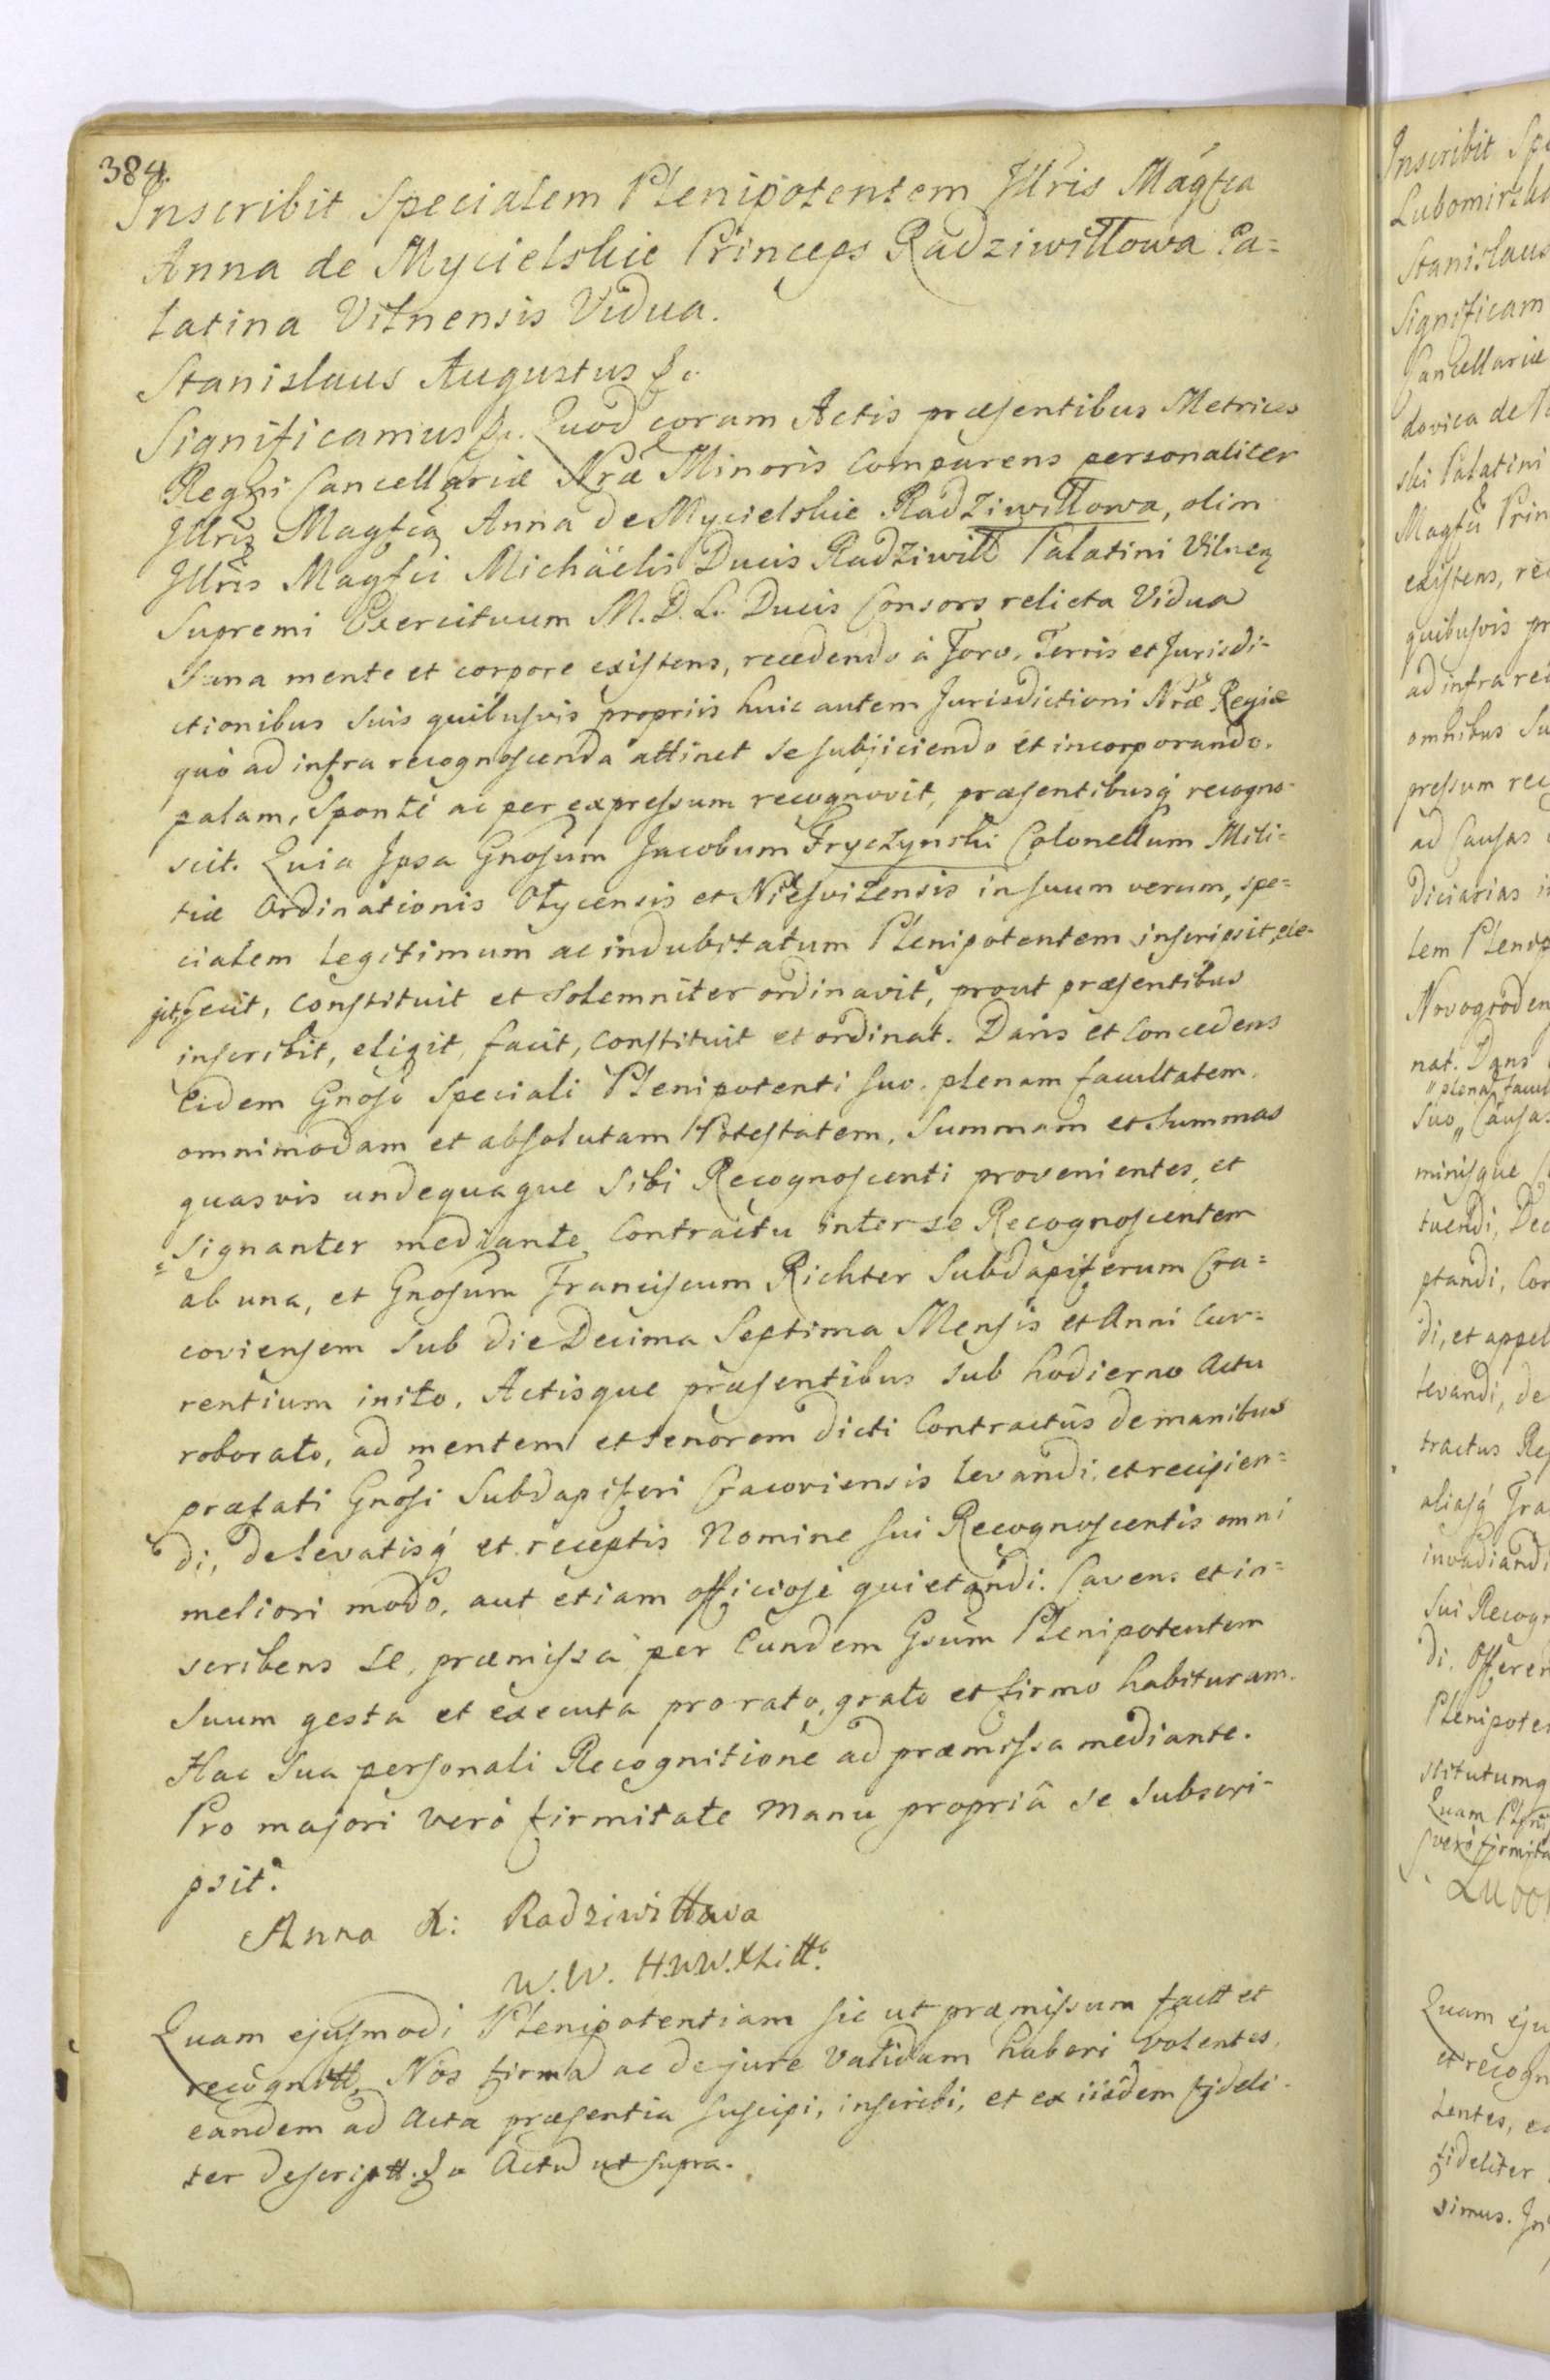 384.
Inscribit Specialem Plenipotentem Jllris Magfca
Anna de Mycielskie Princeps Radziwiłłowa Pa=
latina Vilnensis Vidua.
Stanislaus Augustus &c.
Significamus &c. Quod coram Actis præsentibus Metrices
Regni Cancellariæ Nræ Minoris Comparens personaliter
Jllris Magfca Anna de Mycielskie Radziwiłłowa, olim
Jllris Magfci Michäelis Ducis Radziwiłł Palatini Vilnen
Supremi Exercituum M. D. L. Ducis Consors relicta Vidua
Sana mente et corpore existens, recedendo à Foro, Terris et Jurisdi-
ctionibus Suis quibusvis propriis huic autem Jurisdictioni Nræ Regiæ
quò ad infra recognoscenda attinet se subjiciendo et incorporando.
palam, Sponte ac per expressum recognovit, præsentibusq recogno-
scit. Quia Jpsa Gnosum Jacobum Fryczynski Colonellum Mili-
tiæ Ordinationis Olycensis et Niesvizensis in suum verum, spe=
cialem legitimum ac indubitatum Plenipotentem inscripsit, ele-
git, fecit, constituit et Solemniter ordinavit, prout præsentibus
inscribit, eligit, facit, constituit et ordinat. Dans et Concedens
Eidem Gnoso Speciali Plenipotenti suo. plenam facultatem.
omnimodam et absolutam Potestatem, Summam et Summas
quasvis undequaque Sibi Recognoscenti provenientes, et
signanter mediante Contractu inter se Recognoscentem
ab una, et Gnosum Franciscum Richter Subdapiferum Cra=
coviensem Sub die Decima Septima Mensis et Anni Cur=
rentium inito, Actisque præsentibus sub hodierno Actu
roborato, ad mentem et tenorem dicti Contractûs de manibus
præfati Gnosi Subdapiferi Cracoviensis levandi, et recipien=
di, de levatisq et receptis Nomine sui Recognoscentis omni
meliori modo, aut etiam officiosè quietandi. Cavens et in=
scribens se, præmissa per Eundem Gsum Plenipotentem
Suum gesta et executa pro rato, grato et firmo habituram.
Hac Sua personali Recognitione ad præmissa mediante.
Pro majori verò firmitate Manu propriâ se Subscri-
psit.
Anna X: Radziwiłłowa
W. W. H. W. W. X Litt.
Quam ejusmodi Plenipotentiam sic ut præmissum factt et
recognitt, Nos firmã ac de jure validam haberi volentes,
eandem ad Acta præsentia suscipi, inscribi, et ex iisdem fideli-
ter descriptt. &c Actũ ut supra.